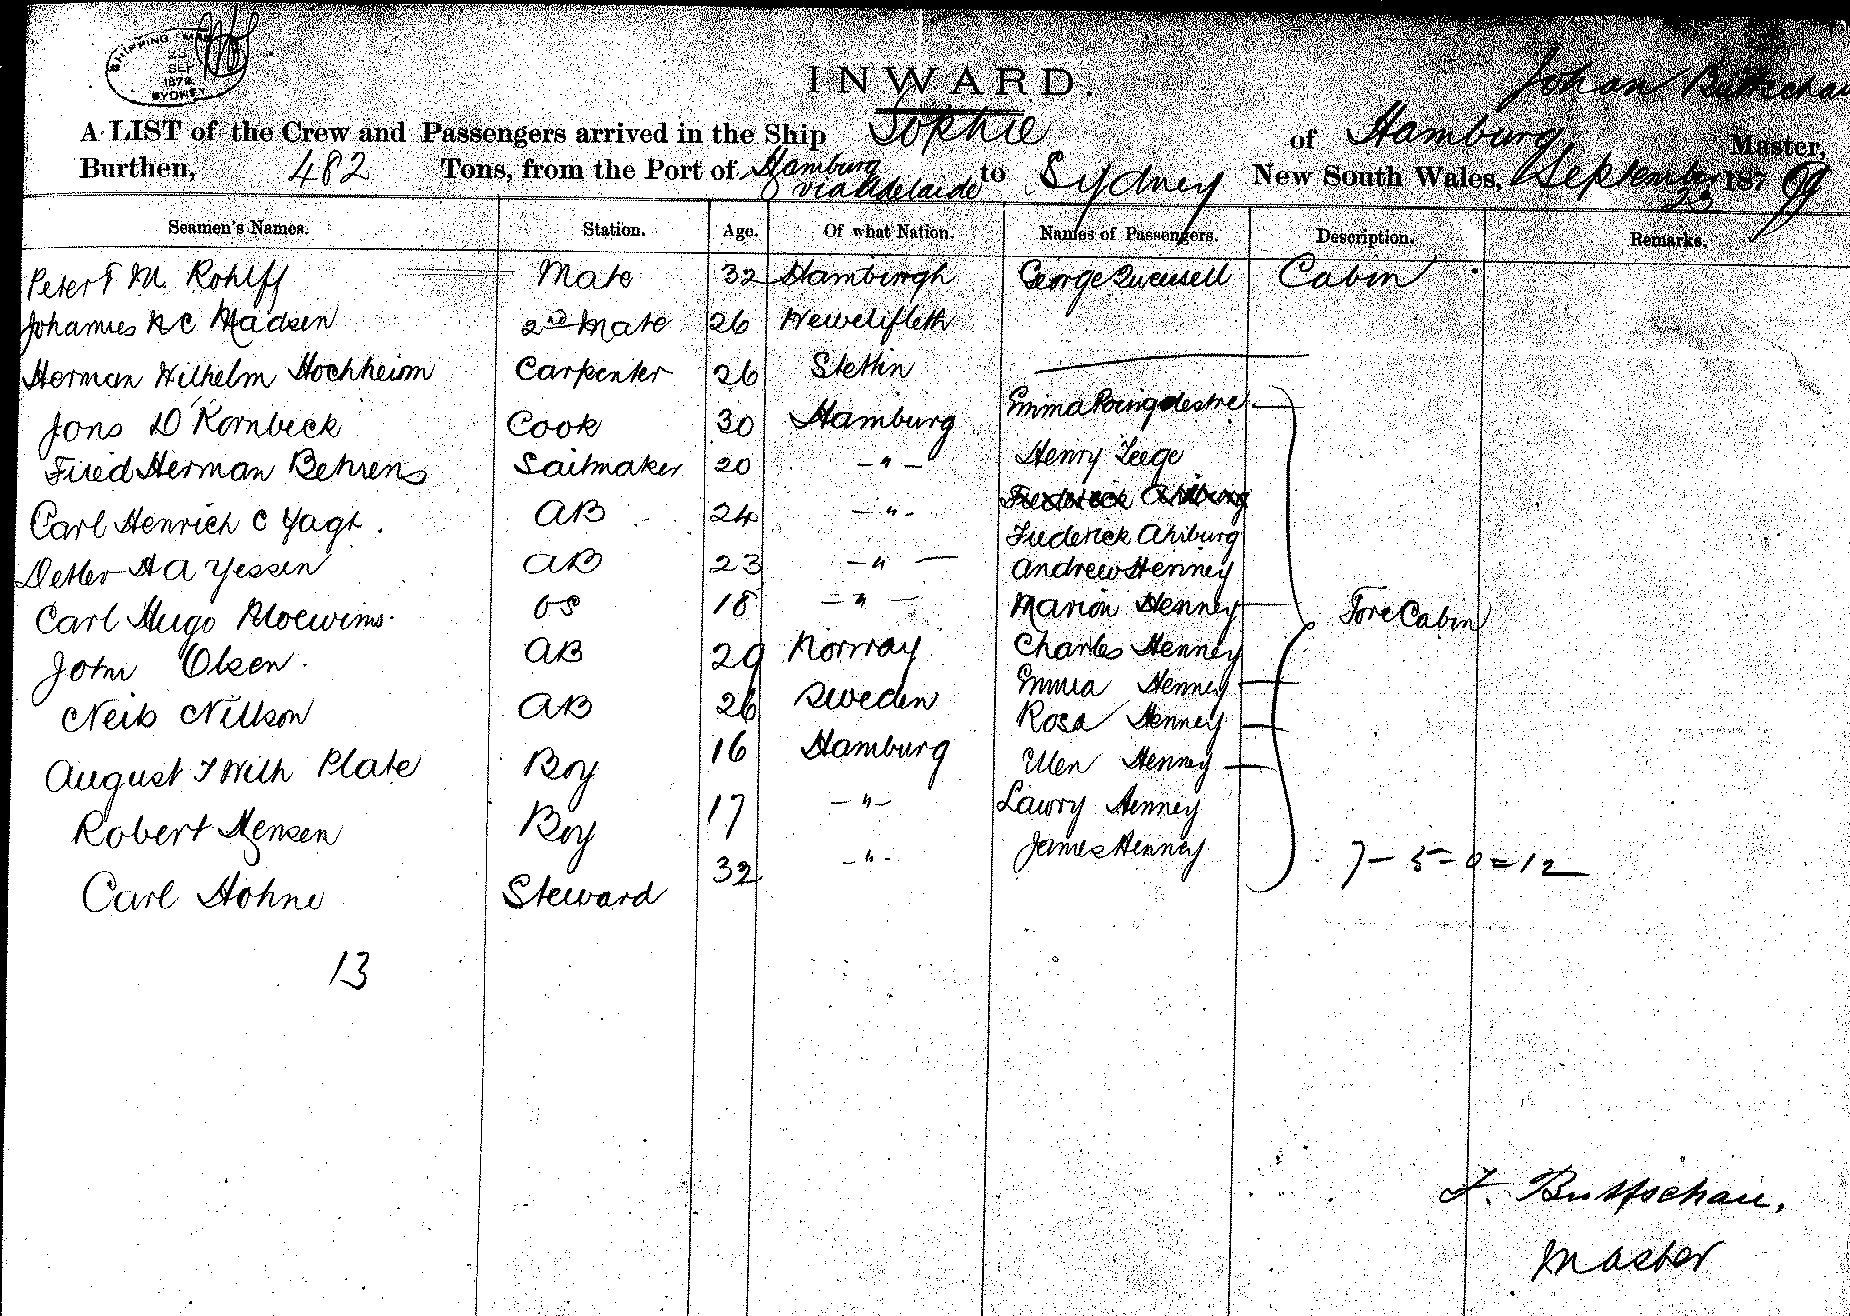 SHIPPING MA
SEP
1879
SYDNEY
INWARD.
Johan
A LIST of the Crew and Passengers arrived in the Ship Sophie of Hamburg Master,
Burthen, 482 Tons, from the Port of Hamburg via Adelaide to Sydney New South Wales, September 23 1879
Seamen's Names. Station. Age. Of what Nation. Names of Passengers. Description. Remarks.
Peter F M. Rohlff Mate 32 Hamburgh George Cabin
Johannes N C Madsen 2nd Mate 26 Wewelsfleth
Herman Wilhelm Hochheim Carpenter 26 Stettin
Jons D Kornbeck Cook 30 Hamburg Emma Poingdestre
Fried Herman Behrens Sailmaker 20 - " - Henry Leege
Carl Henrich C Yagt. AB 24 - " - Frederick Ahlburg
Frederick Ahlburg
Detler H A Yessen AB 23 - " - Andrew Henney
Carl Hugo OS 18 - " - Marion Henney Fore Cabin
John Olsen. AB 29 Norway Charles Henney
Neils Nillson AB 26 Sweden Emma Henney
Rosa Henney
August F Wilh Plate Boy 16 Hamburg Ellen Henney
Robert Jensen Boy 17 - " - Lawry Henney
Carl Hohne Steward 32 - " - James Henney
7 - 5 - 0 = 12
13
J. Buttschau,
Master